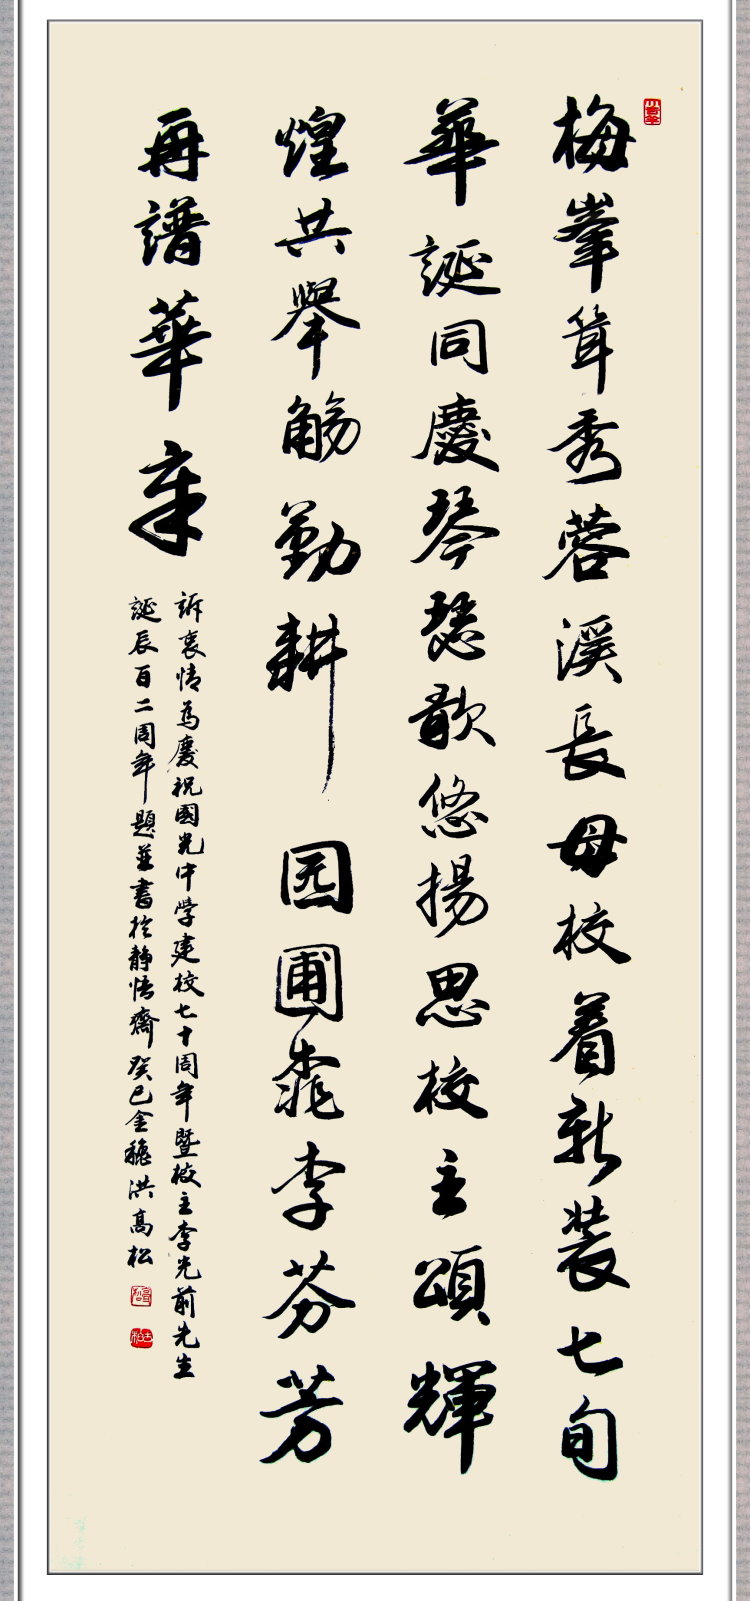 梅峯耸秀蓉溪長母校着新装七旬
華誕同慶琴瑟歌悠揚思校主頌輝
煌共舉觴勤耕园圃桃李芬芳
再譜華章
訴衷情為慶祝國光中学建校七十周年暨校主李光前先生
誕辰百二周年題並書於靜悟齋癸巳金穐洪高松